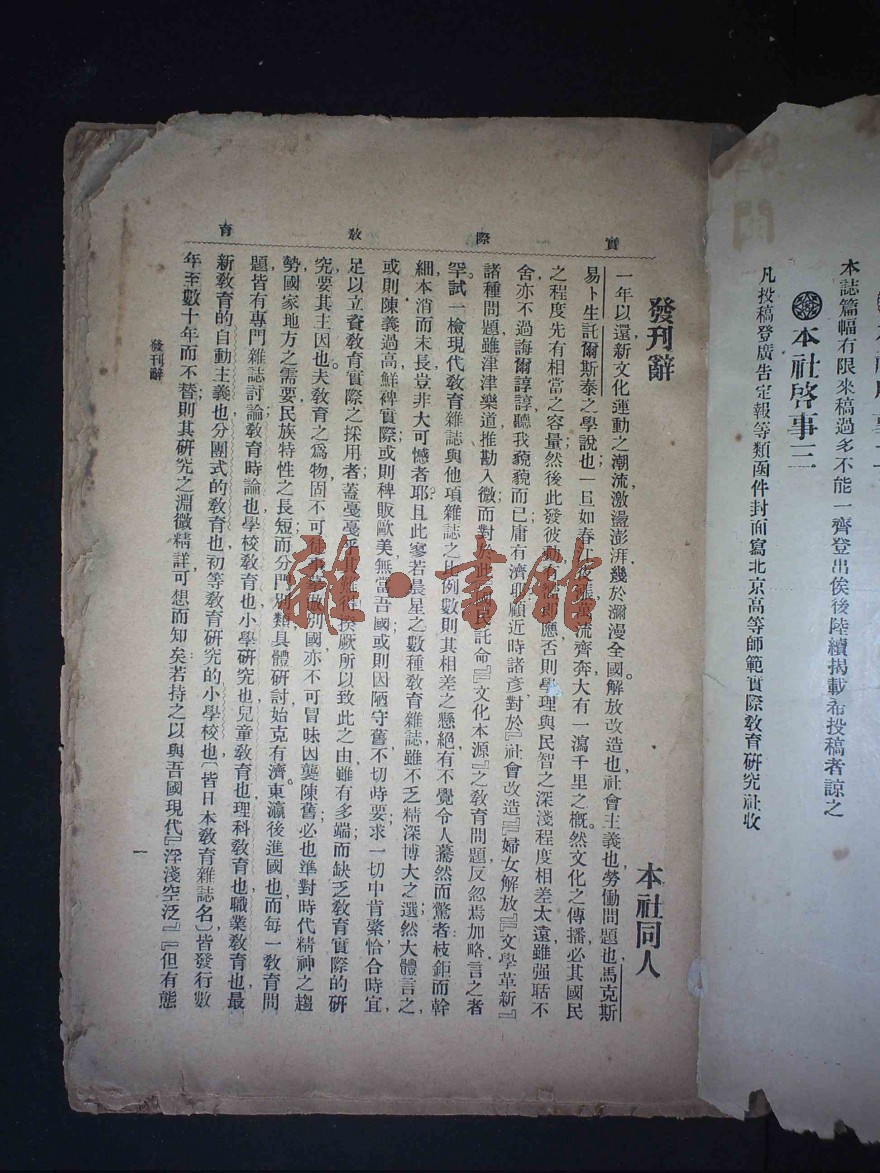 本社啓事三
本誌篇幅有限來稿過多不能一齊登出俟後陸續揭載希投稿者諒之
凡投稿發廣告定報等類函件封面寫北京高等師範實際教育研究社收
實際教育
發刊辭
本社同人
一年以還，新文化運動之潮流，激盪澎湃，幾於瀰漫全國。解放改造也，社會主義也，勞働問題也，馬克斯
易卜生託爾斯泰之學說也；一旦如春江夜漲，萬流齊奔，大有一瀉千里之概。然文化之傳播，必其國民
之程度，先有相當之容量，然後此發彼，應。否則學理與民智之深淺程度，相差太遠，雖强聒不
舍，亦不過誨爾諄諄，聽我藐藐而已，庸有濟耶？顧近時諸彥，對於『社會改造』『婦女解放』『文學革新』
諸種問題，雖津津樂道，推勘入微；而對於此『國民託命』『文化本源』之教育問題，反忽焉加略，言之者
罕。試一檢現代教育雜誌與他項雜誌之比例數，則其相差之懸絕，有不覺令人驀然而驚者；枝鉅而幹
細，本消而末長，豈非大可憾者耶？且此寥若晨星之數種教育雜誌，雖不乏精深博大之選；然大體言之，
或則陳義過高，鮮裨實際，或則稗販歐美，無當吾國；或則因陋守舊，不切時要；求一切中肯綮，恰合時宜，
足以立資教育實際之採用者，蓋戛戛乎其難得。揆厥所以致此之由，雖有多端；而缺乏教育實際的研
究，要其主因也。夫教育之爲物，固不可徒事摹倣別國，亦不可冒昧因襲陳舊；必也準對時代精神之趨
勢，國家地方之需要，民族特性之長短，而分門別類，具體研討，始克有濟。東瀛後進國也，而每一教育問
題，皆有專門雜誌討論；教育時論也，學校教育也，小學研究也，兒童教育也，理科教育也，職業教育也，最
新教育的自動主義也，分團式的教育也，初等教育研究的小學校也，（皆日本教育雜誌名）皆發行數
年至數十年而不替；則其研究之淵微精詳，可想而知矣。若持之以與吾國現代『浮淺空泛』『但有態
發刊辭
一
雜·書館